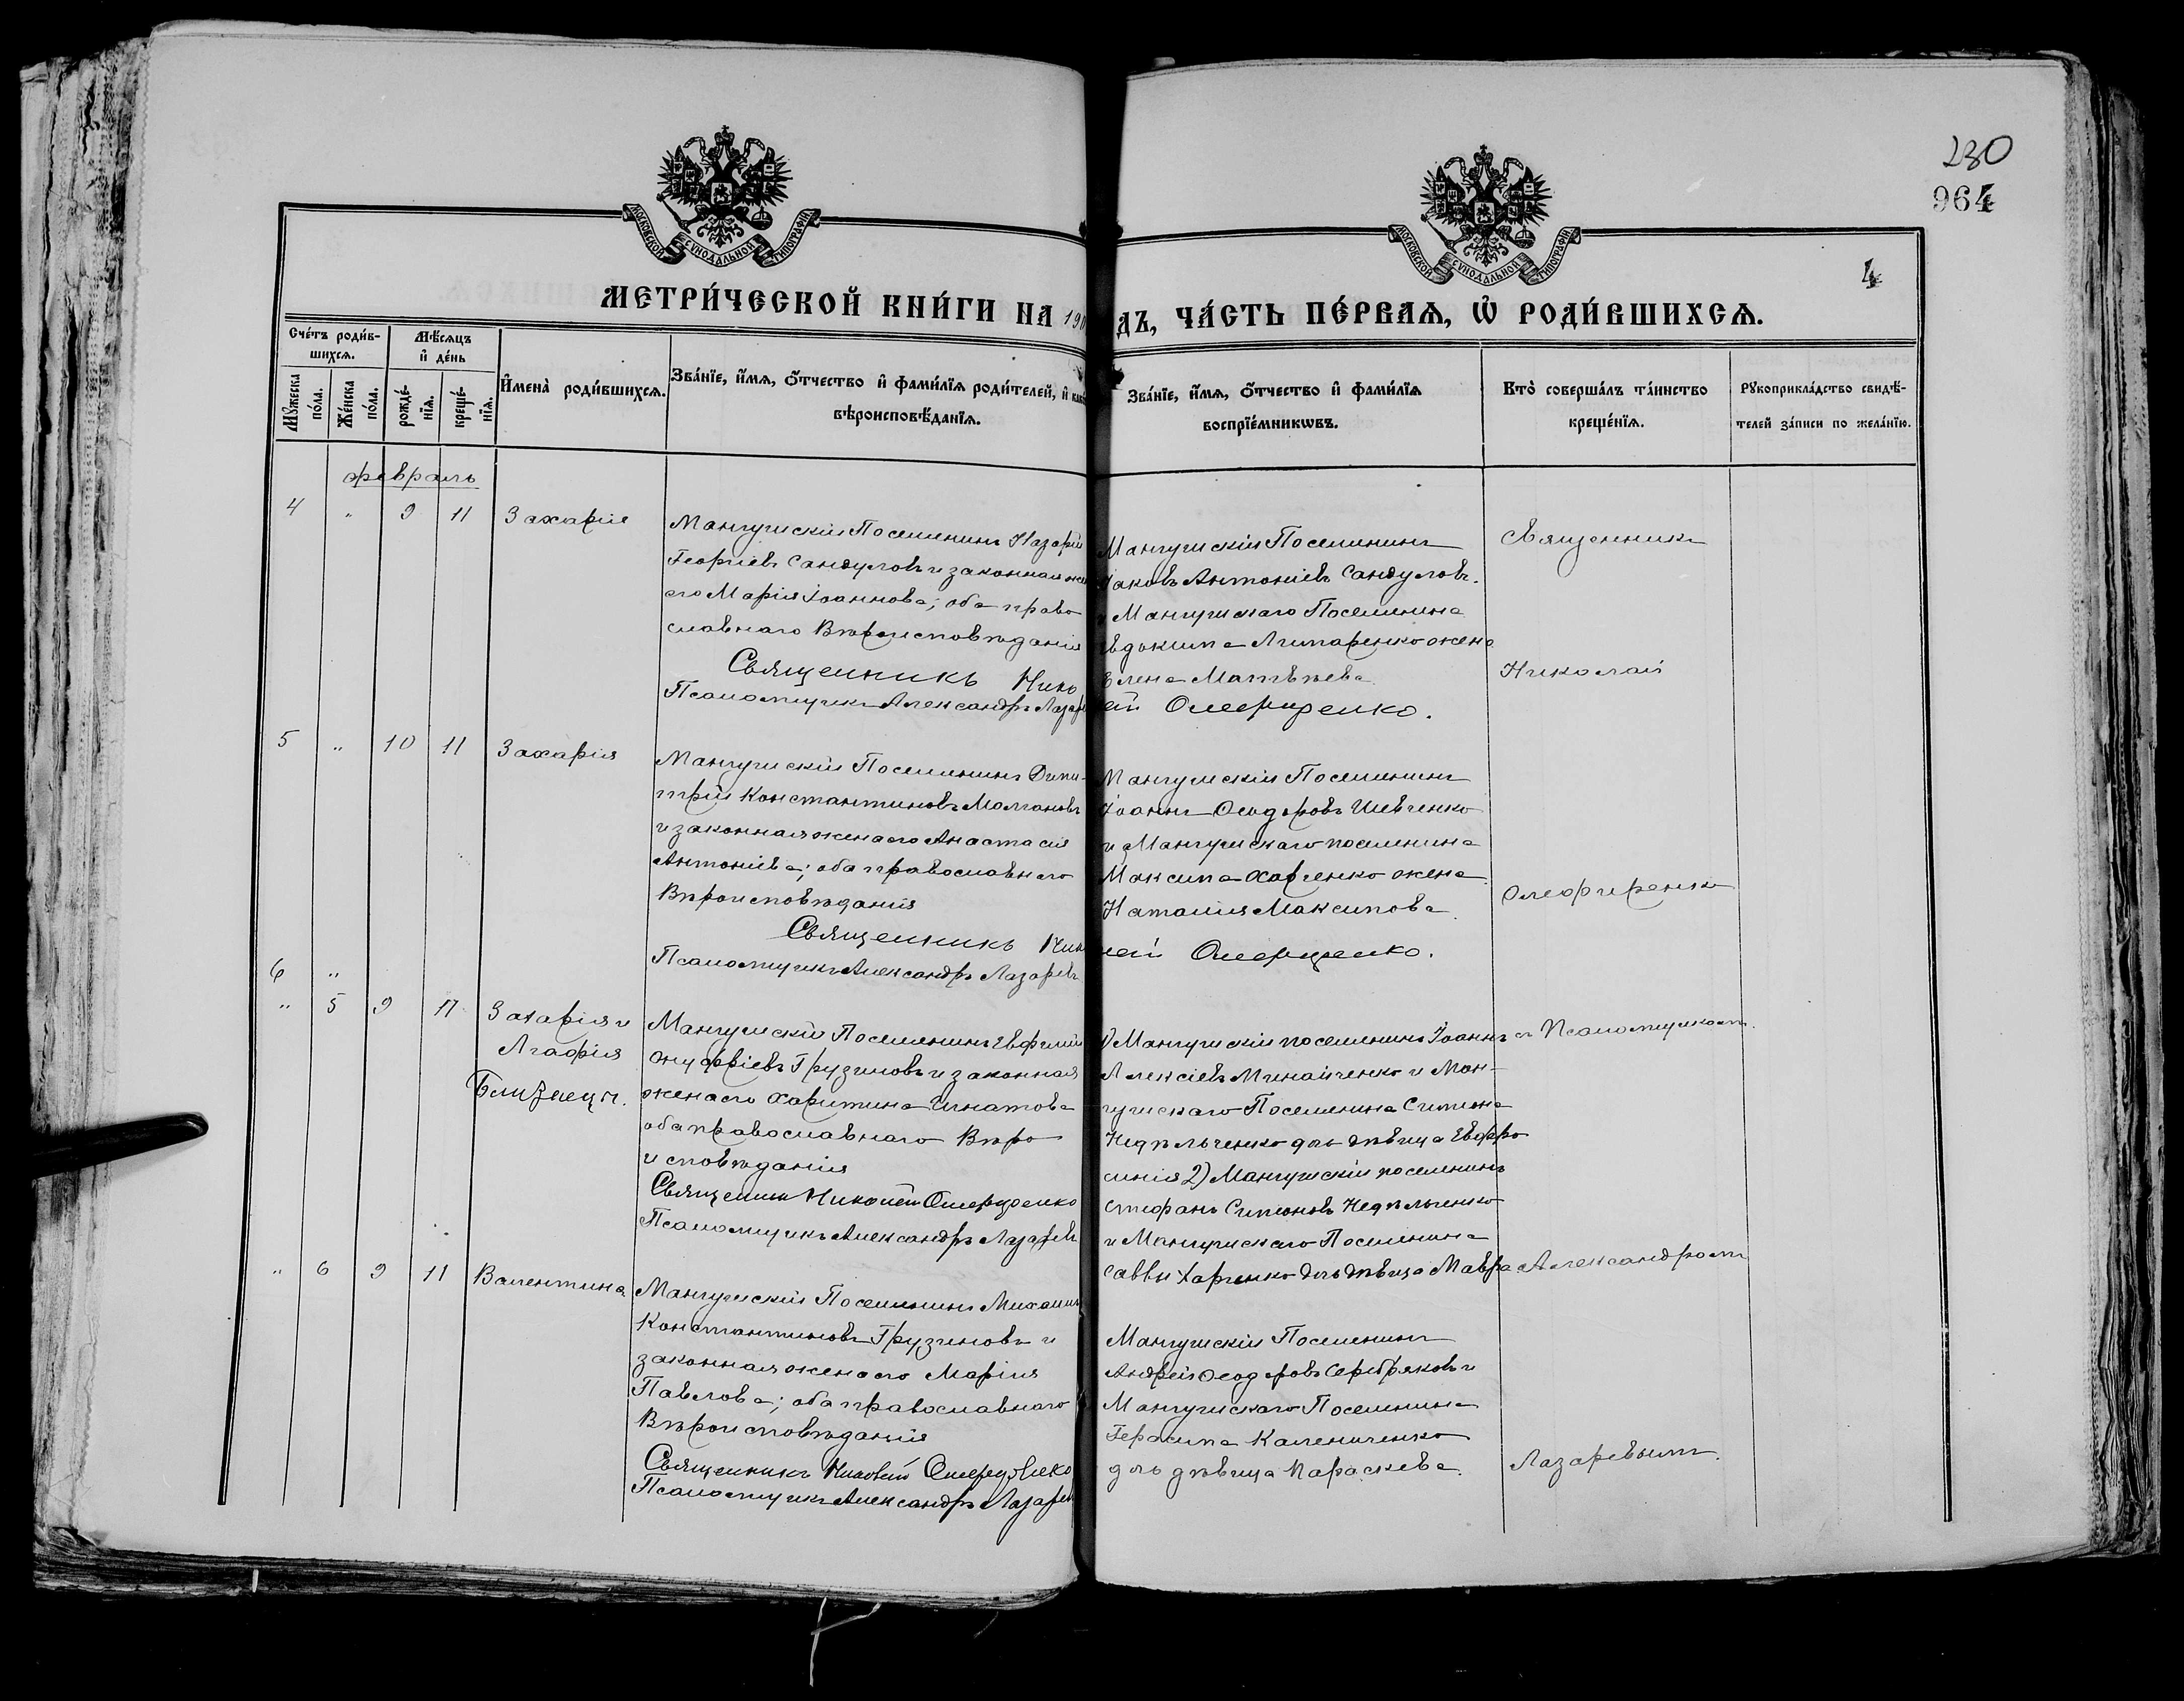 230
964
4
МОСКОВСКОЙ СУНОДАЛЬНОЙ ТИПОГРАФІИ
МОСКОВСКОЙ СУНОДАЛЬНОЙ ТИПОГРАФІИ
МЕТРИ́ЧЕСКОЙ КНИ́ГИ НА 190
ДЪ, ЧА́СТЬ ПЕ́РВАѦ, Ѡ РОДИ́ВШИХСѦ.
Сче́тъ роди́в-
шихсѧ.
Мѣ́сѧцъ
и҆ де́нь
Мꙋ́жеска
по́ла.
Же́нска
по́ла.
рожде́-
нїѧ.
креще́-
нїѧ.
И҆мена̀ роди́вшихсѧ.
Зва́нїе, и҆́мѧ, ѻ҆́тчество и҆ фами́лїѧ роди́телей, и҆
вѣроисповѣ́данїѧ.
Зва́нїе, и҆́мѧ, ѻ҆́тчество и҆ фами́лїѧ
воспрїе́мникѡвъ.
Кто̀ соверша́лъ та́инство
креще́нїѧ.
Рꙋкоприкла́дство свидѣ́-
телей за́писи по жела́нїю.
февраль
4 " 9 11 Захарія
Мангушскій Поселянинъ Назарій
Георгіевъ Сандуловъ и законная
его Марія Іоаннова; оба право
славнаго Вѣроисповѣданія
Священникъ Нико
Псаломщикъ Александръ Лазар
Мангушскій Поселянинъ
Іаковъ Антоніевъ Сандуловъ.
и Мангушскаго Поселянина
Евдокима Литаренко жена
Елена Матѳѣева
ай Олефиренко.
Священникъ
Николай
5 " 10 11 Захарія
Мангушскій Поселянинъ Дими-
трій Константиновъ Молчановъ
и законная жена его Анастасія
Антоніева; оба православнаго
Вѣроисповѣданія
Священникъ Ник
Псаломщикъ Александръ Лазаревъ
Мангушскій Поселянинъ
Іоаннъ Ѳеодоровъ Шевченко
и Мангушскаго поселянина
Максима Харченко жена
Наталія Максимова
лай Олефиренко.
Олефиренко
6 "
" 5 9 11 Захарія и
Агафія
Близнецы.
Мангушскій Поселянинъ Евфимій
Онуфріевъ Грузиновъ и законная
жена его Харитина Игнатова
оба православнаго Вѣро
исповѣданія
Священникъ Николай Олефиренко
Псаломщикъ Александръ Лазаревъ
1) Мангушскій поселянинъ Іоаннъ
Алексіевъ Минайченко и Ман-
гушскаго Поселянина Симеона
Недѣльченко дочь дѣвица Евфро
синія 2) Мангушскій поселянинъ
Стефанъ Симеоновъ Недѣльченко
и Мангушскаго Поселянина
Саввы Харченко дочь дѣвица Мавра
съ Псаломщикомъ
Александромъ
" 6 9 11 Валентина
Мангушскій Поселянинъ Михаилъ
Константиновъ Грузиновъ и
законная жена его Марія
Павлова; оба православнаго
Вѣроисповѣданія
Священникъ Николай Олефиренко
Псаломщикъ Александръ Лазарев
Мангушскій Поселянинъ
Андрей Ѳеодоровъ Серебряковъ и
Мангушскаго Поселянина
Герасима Калениченко
дочь дѣвица Параскева.
Лазаревымъ